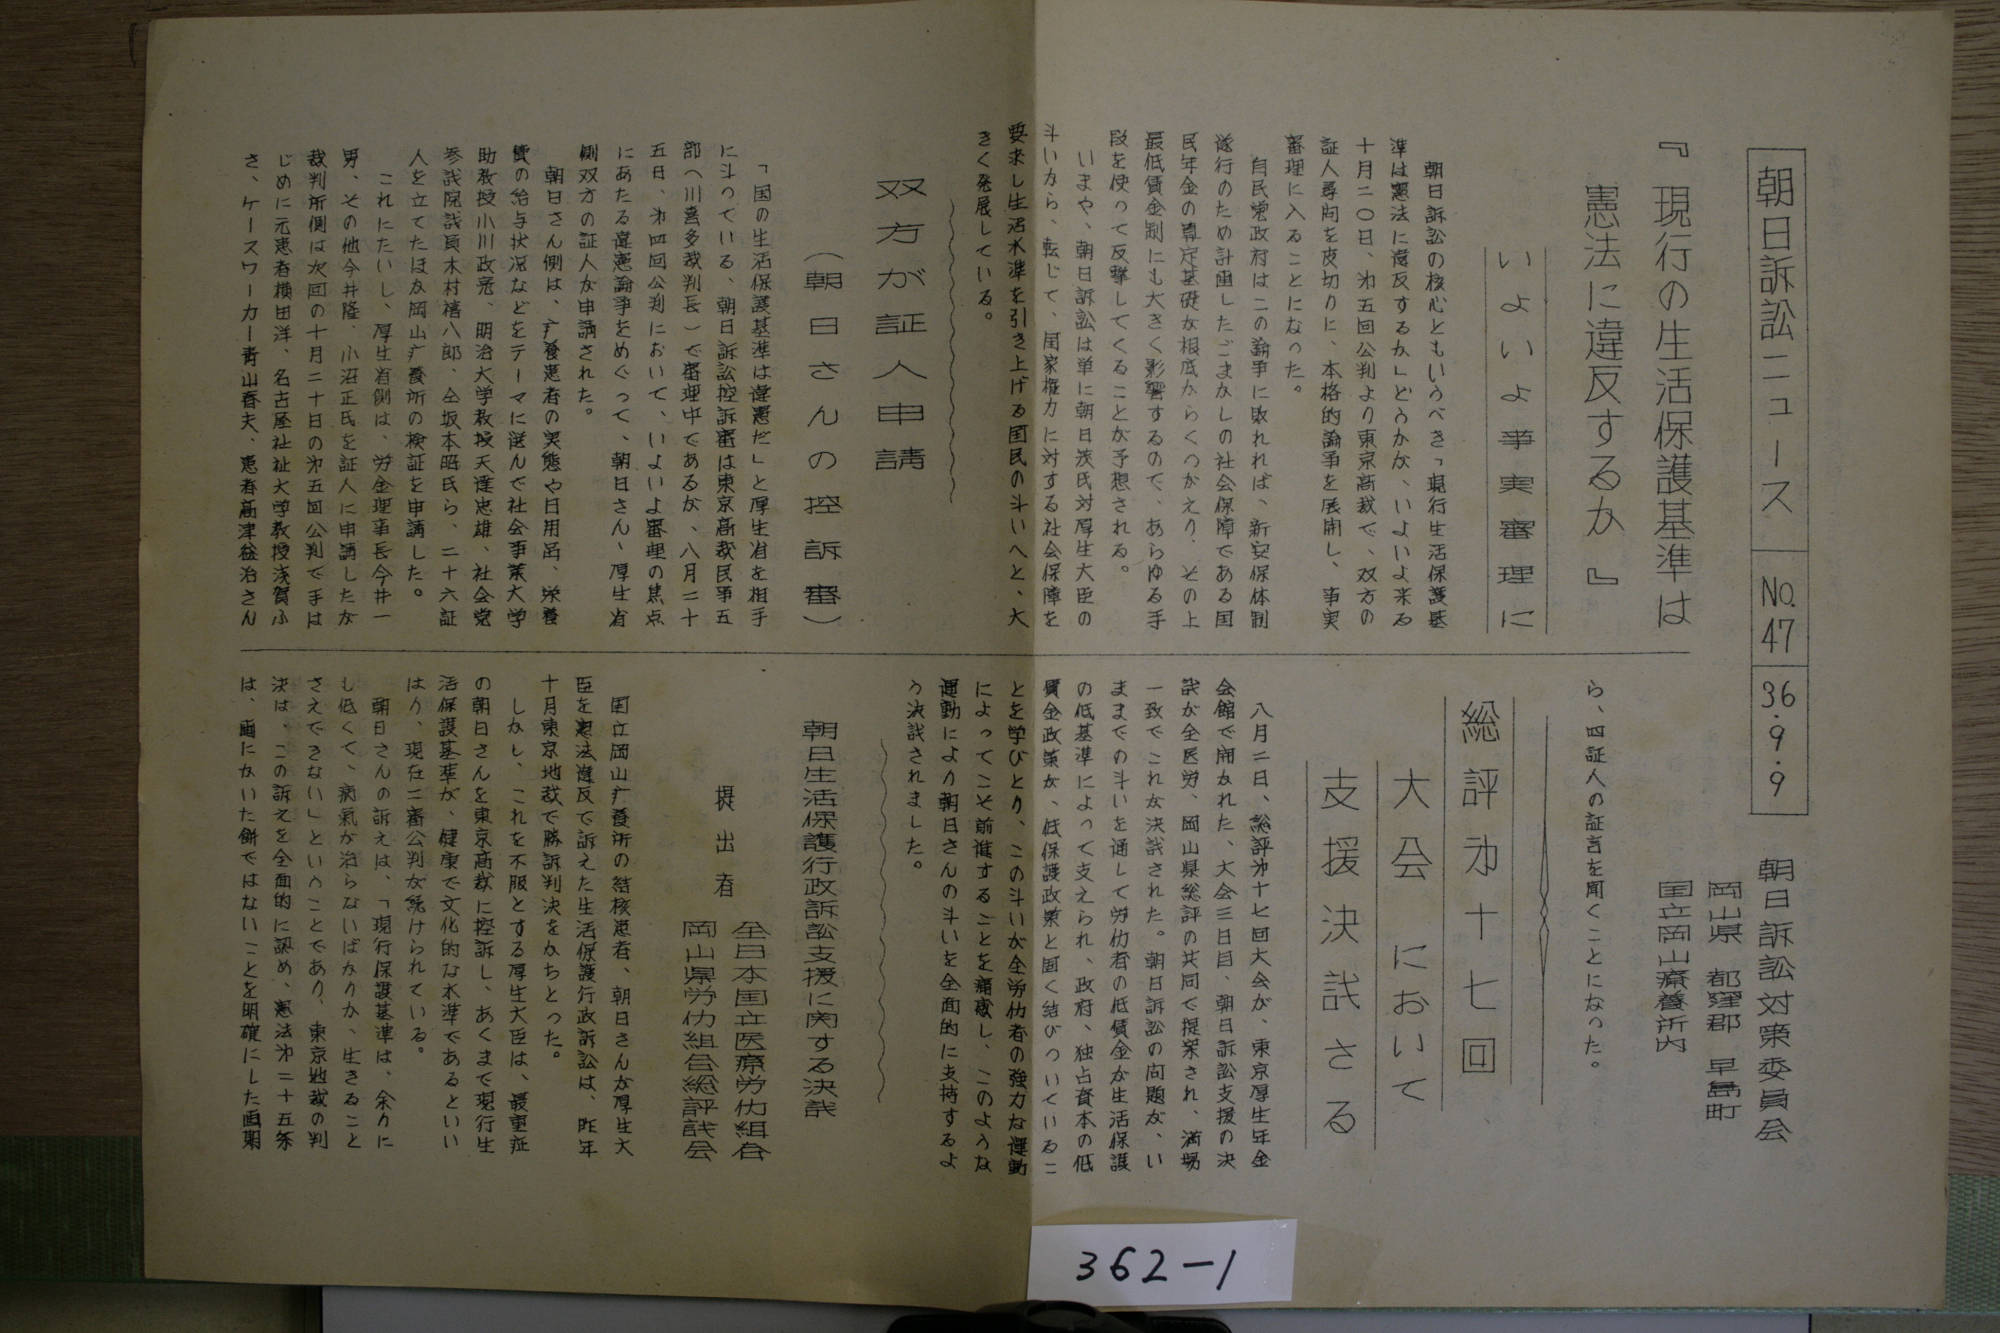 朝日訴訟ニュース No.47 36.9.9
朝日訴訟対策委員会
岡山県 都窪郡 早島町
国立岡山療養所内
『現行の生活保護基準は
憲法に違反するか』
いよいよ事実審理に
朝日訴訟の核心ともいうべき「現行生活保護基
準は憲法に違反するか」どうかが、いよいよ来る
十月二〇日、沖五回公判より東京高裁で、双方の
証人尋問を皮切りに、本格的論争を展開し、事実
審理に入ることになった。
自民党政府はこの論争に敗れれば、新安保体制
遂行のため計画したごまかしの社会保障である国
民年金の算定基礎が根底からくつがえり、その上
最低賃金制にも大きく影響するので、あらゆる手
段を使って反撃してくることが予想される。
いまや、朝日訴訟は単に朝日茂氏対厚生大臣の
斗いから、転じて、国家権力に対する社会保障を
要求し生活水準を引き上げる国民の斗いへと、大
きく発展している。
双方が証人申請
(朝日さんの控訴審)
「国の生活保護基準は違憲だ」と厚生省を相手
に斗っている、朝日訴訟控訴審は東京高裁民事五
部(川喜多裁判長)で審理中であるが、八月二十
五日、沖四回公判において、いよいよ審理の焦点
にあたる違憲論争をめぐって、朝日さん、厚生省
側双方の証人が申請された。
朝日さん側は、疒養患者の実態や日用品、栄養
費の給与状況などをテーマに選んで社会事業大学
助教授小川政亮、明治大学教授天達忠雄、社会党
参議院議員木村禧八郎、仝坂本昭氏ら、二十六証
人を立てたほか岡山疒養所の検証を申請した。
これにたいし、厚生省側は、労金理事長今井一
男、その他今井隆、小沼正氏を証人に申請したが
裁判所側は次回の十月二十日の沖五回公判で手は
じめに元患者横田洋、名古屋社祉大学教授浅賀ふ
さ、ケースワーカー青山春夫、患者高津益治さん
ら、四証人の証言を聞くことになった。
総評沖十七回
大会において
支援決议さる
八月二日、総評沖十七回大会が、東京厚生年金
会館で開かれた、大会三日目、朝日訴訟支援の決
议が全医労、岡山県総評の共同で提案され、満場
一致でこれが決议された。朝日訴訟の问題が、い
ままでの斗いを通して労仂者の低賃金が生活保護
の低基準によって支えられ、政府、独占資本の低
賃金政策が、低保護政策と固く結びついているこ
とを学びとり、この斗いが全労仂者の強力な運動
によってこそ前進することを痛感し、このような
運動により朝日さんの斗いを全面的に支持するよ
う決议されました。
朝日生活保護行政訴訟支援に関する決议
提出者
全日本国立医療労仂組合
岡山県労仂組合総評议会
国立岡山疒養所の結核患者、朝日さんが厚生大
臣を憲法違反で訴えた生活保護行政訴訟は、昨年
十月東京地裁で勝訴判決をかちとった。
しかし、これを不服とする厚生大臣は、最重症
の朝日さんを東京高裁に控訴し、あくまで現行生
活保護基準が、健康で文化的な水準であるといい
はり、現在二審公判が続けられている。
朝日さんの訴えは、「現行保護基準は、余りに
し低くて、病氣が治らないばかりか、生きること
さえできない」ということであり、東京地裁の判
決は、この訴えを全面的に認め、憲法沖二十五条
は、画にかいた餅ではないことを明確にした画期
362-1